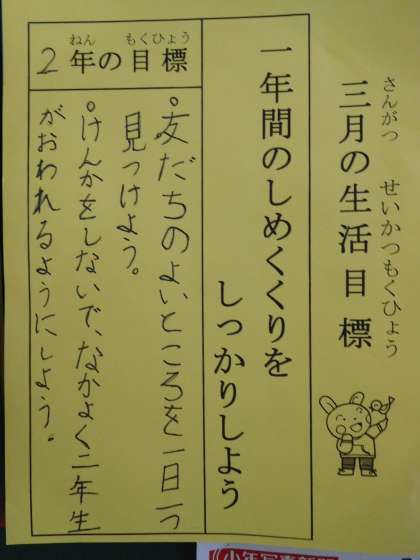 さんがつ せいかつもくひょう
三月の生活目標
一年間のしめくくりを
しっかりしよう
ねん もくひょう
2年の目標
○友だちのよいところを一日一つ
見つけよう。
○けんかをしないで、なかよく二年生
がおわれるようにしよう。
少年写真新聞